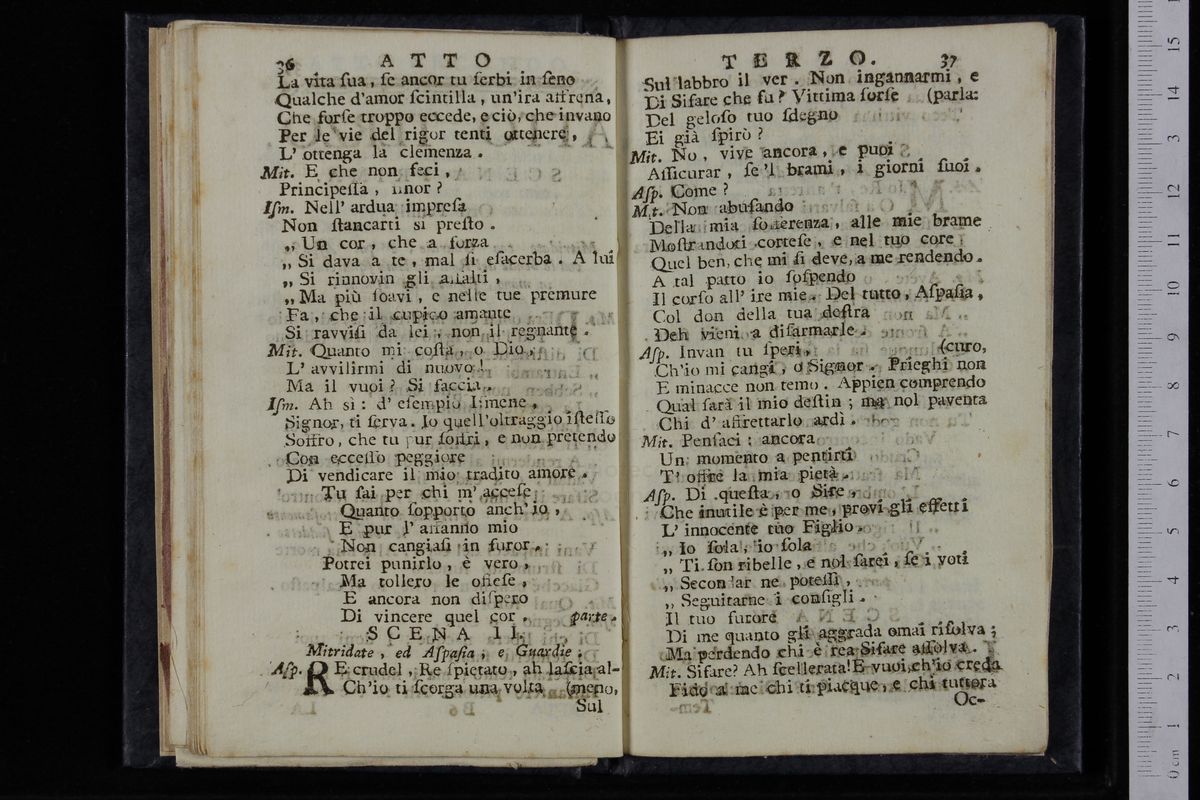 36 ATTO
La vita ſua, ſe ancor tu ſerbi in ſeno
Qualche d'amor ſcintilla, un'ira affrena,
Che forſe troppo eccede, e ciò, che invano
Per le vie del rigor tenti ottenere,
L' ottenga la clemenza.
Mit. E che non feci,
Principeſſa, finor?
Iſm. Nell' ardua impreſa
Non ſtancarti sì preſto.
„ Un cor, che a forza
„ Si dava a te, mal ſi eſacerba. A lui
„ Si rinnovin gli aſſalti,
„ Ma più ſoavi, e nelle tue premure
Fa, che il cupido amante
Si ravviſi da lei, non il regnante.
Mit. Quanto mi coſta, o Dio,
L' avvilirmi di nuovo!
Ma il vuoi? Si faccia.
Iſm. Ah sì: d' eſempio Iſmene,
Signor, ti ſerva. Io quell'oltraggio iſteſſo
Soffro, che tu pur ſoffri, e non pretendo
Con ecceſſo peggiore
Di vendicare il mio tradito amore.
Tu ſai per chi m' acceſe,
Quanto ſopporto anch' io,
E pur l' affanno mio
Non cangiaſi in furor.
Potrei punirlo, è vero,
Ma tollero le offeſe,
E ancora non diſpero
Di vincere quel cor. parte.
SCENA II.
Mitridate, ed Aſpaſia, e Guardie.
Aſp. RE crudel, Re ſpietato, ah laſcia al-
Ch'io ti ſcorga una volta (meno,
Sul
TERZO. 37
Sul labbro il ver. Non ingannarmi, e
Di Sifare che fu? Vittima forſe (parla:
Del geloſo tuo ſdegno
Ei già ſpirò?
Mit. No, vive ancora, e puoi
Aſſicurar, ſe 'l brami, i giorni ſuoi.
Aſp. Come?
Mit. Non abuſando
Della mia ſofferenza, alle mie brame
Moſtrandoti corteſe, e nel tuo core
Quel ben, che mi ſi deve, a me rendendo.
A tal patto io ſoſpendo
Il corſo all' ire mie. Del tutto, Aſpaſia,
Col don della tua deſtra
Deh vieni a diſarmarle.
Aſp. Invan tu ſperi, (curo,
Ch'io mi cangi, o Signor. Prieghi non
E minacce non temo. Appien comprendo
Qual ſarà il mio deſtin; ma nol paventa
Chi d' affrettarlo ardì.
Mit. Penſaci: ancora
Un momento a pentirti
T' offre la mia pietà.
Aſp. Di queſta, o Sire,
Che inutile è per me, provi gli effetti
L' innocente tuo Figlio.
„ Io ſola, io ſola
„ Ti ſon ribelle, e nol ſarei, ſe i voti
„ Secondar ne poteſſi,
„ Seguitarne i conſigli.
Il tuo furore
Di me quanto gli aggrada omai riſolva;
Ma perdendo chi è rea Sifare aſſolva.
Mit. Sifare? Ah ſcellerata! E vuoi, ch'io creda
Fido a me chi ti piacque, e chi tuttora
Oc-